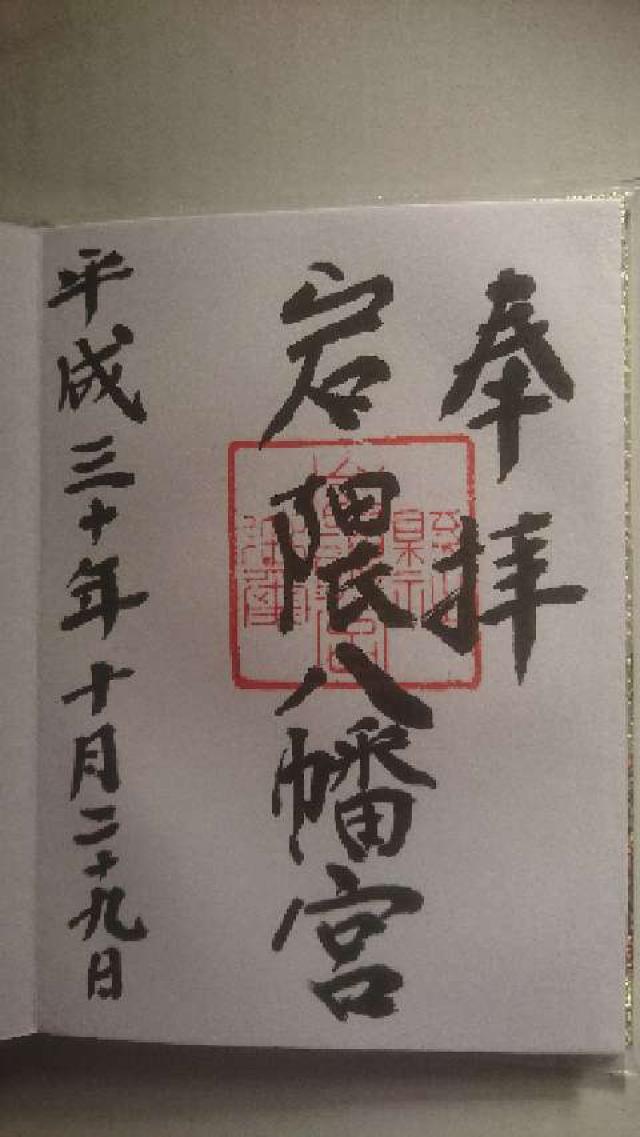 奉拝
岩隈八幡宮
平成三十年十月二十九日